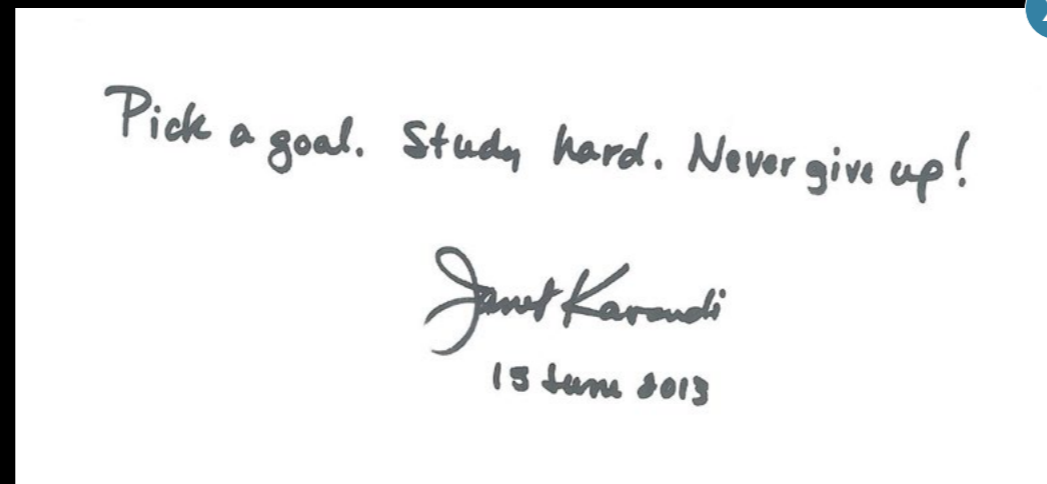 Pick a goal. Study hard. Never give up!
Janet Kavandi
15 June 2013